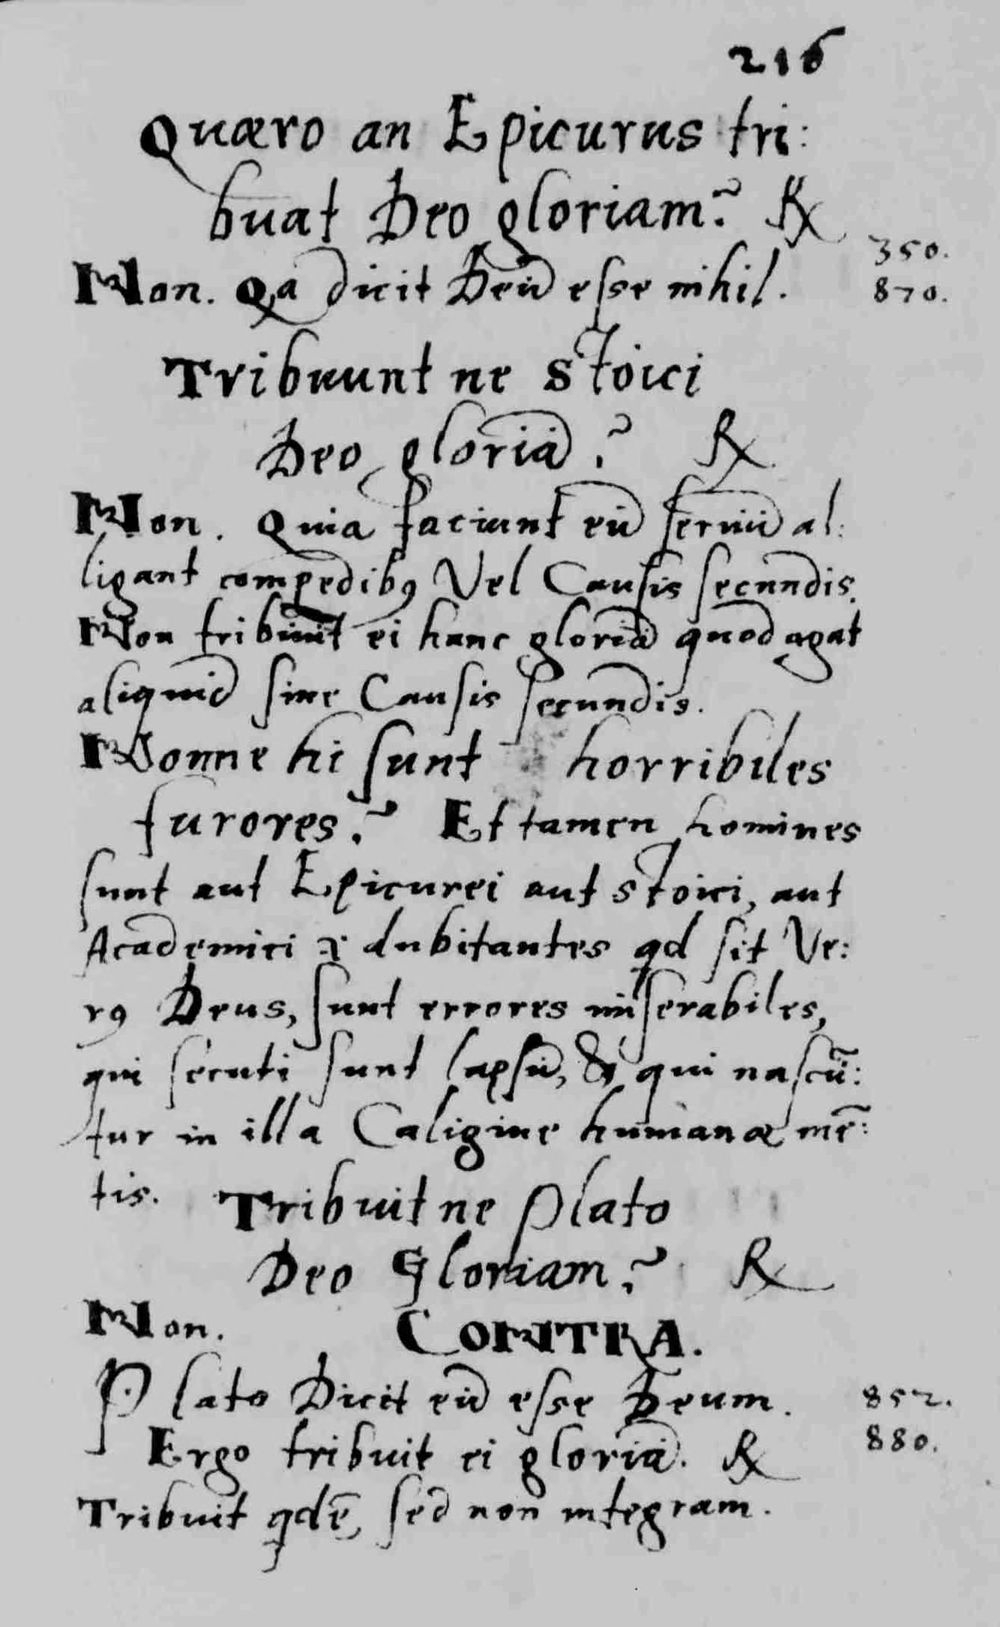 216
Quæro an Epicurus tri:
buat Deo gloriam? ℞
350.
Non. Qa dicit Deū esse nihil. 870.
Tribuunt ne Stoici
Deo gloriā? ℞
Non. Quia faciunt eū servū al:
ligant compedibꝫ Vel Causis secundis.
Non tribuūt ei hanc gloriā quod agat
aliquid sine Causis secundis.
Nonne hi sunt horribiles
furores? Et tamen homines
sunt aut Epicurei aut Stoici, aut
Academici .i. dubitantes qd sit Ve:
rꝯ Deus, sunt errores miserabiles,
qui secuti sunt lapsū, & qui nascū:
tur in illa Caligine humanæ mē:
tis. Tribuit ne Plato
Deo Gloriam? ℞
Non. CONTRA.
Plato Dicit eū esse Deum. 852.
Ergo tribuit ei gloriā. ℞ 880.
Tribuit qdē, sed non integram.